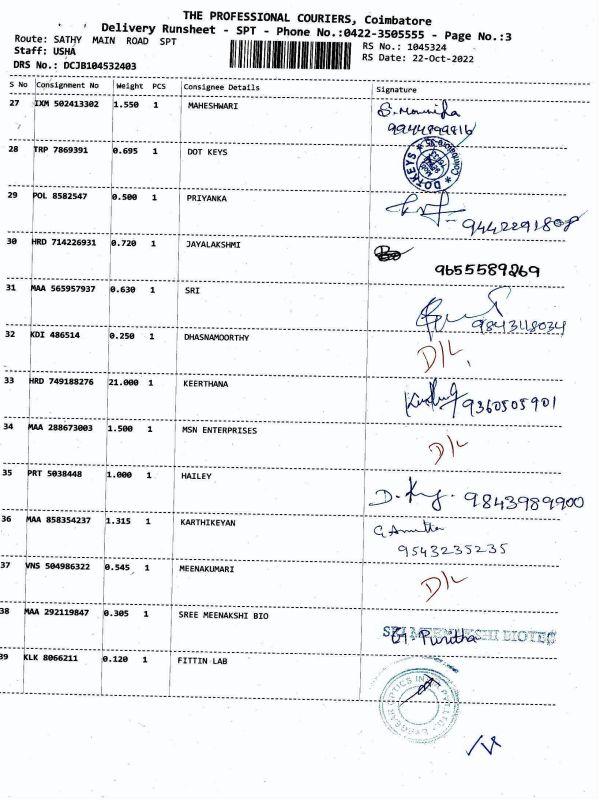 THE PROFESSIONAL COURIERS, Coimbatore
Delivery Runsheet - SPT - Phone No.:0422-3505555 - Page No.:3
Route: SATHY MAIN ROAD SPT
RS No.: 1045324
Staff: USHA
RS Date: 22-Oct-2022
DRS No.: DCJB104532403
S No Consignment No Weight PCS Consignee Details Signature
27 IXM 502413302 1.550 1 MAHESHWARI
9944899816
28 TRP 7869391 0.695 1 DOT KEYS DOTKEYS
29 POL 8582547 0.500 1 PRIYANKA
9442291808
30 HRD 714226931 0.720 1 JAYALAKSHMI
9655589269
31 MAA 565957937 0.630 1 SRI
9843118034
32 KDI 486514 0.250 1 DHASNAMOORTHY D/L
33 HRD 749188276 21.000 1 KEERTHANA 9360505901
34 MAA 288673003 1.500 1 MSN ENTERPRISES D/L
35 PRT 5038448 1.000 1 HAILEY 9843989900
36 MAA 858354237 1.315 1 KARTHIKEYAN
9543235235
37 VNS 504986322 0.545 1 MEENAKUMARI D/L
38 MAA 292119847 0.305 1 SREE MEENAKSHI BIO
39 KLK 8066211 0.120 1 FITTIN LAB